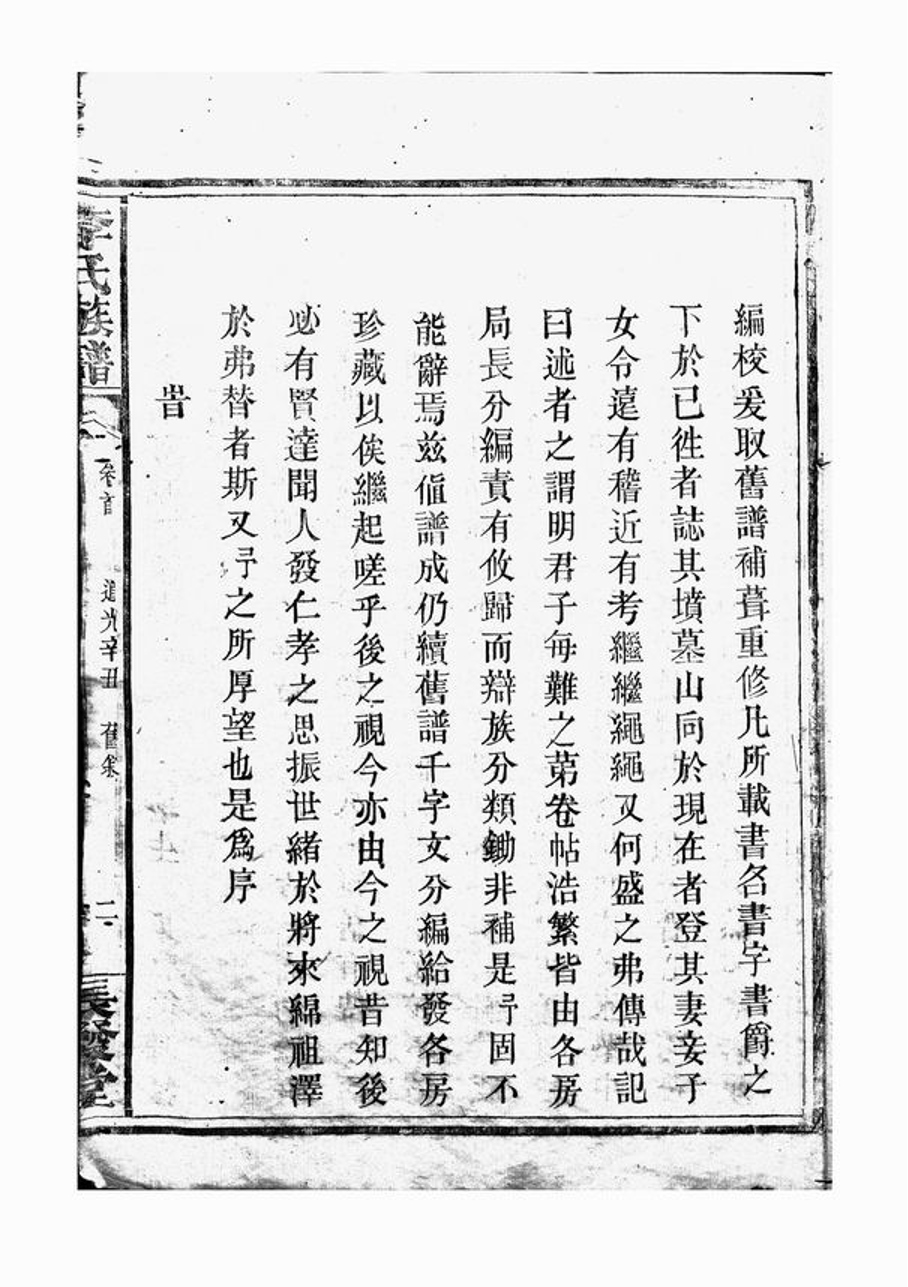 編校爰取舊譜補葺重修凡所載書名書字書爵之
下於已徃者誌其墳墓山向於現在者登其妻妾子
女令遠有稽近有考繼繼繩繩又何盛之弗傳哉記
曰述者之謂明君子每難之苐卷帖浩繁皆由各房
局長分編責有攸歸而辯族分類鋤非補是予固不
能辭焉兹値譜成仍續舊譜千字文分編給發各房
珍藏以俟繼起嗟乎後之視今亦由今之視昔知後
必有賢達聞人發仁孝之思振世緒於將來綿祖澤
於弗替者斯又予之所厚望也是爲序
旹
李氏族譜
卷首
道光辛丑
舊叅
二
長發堂